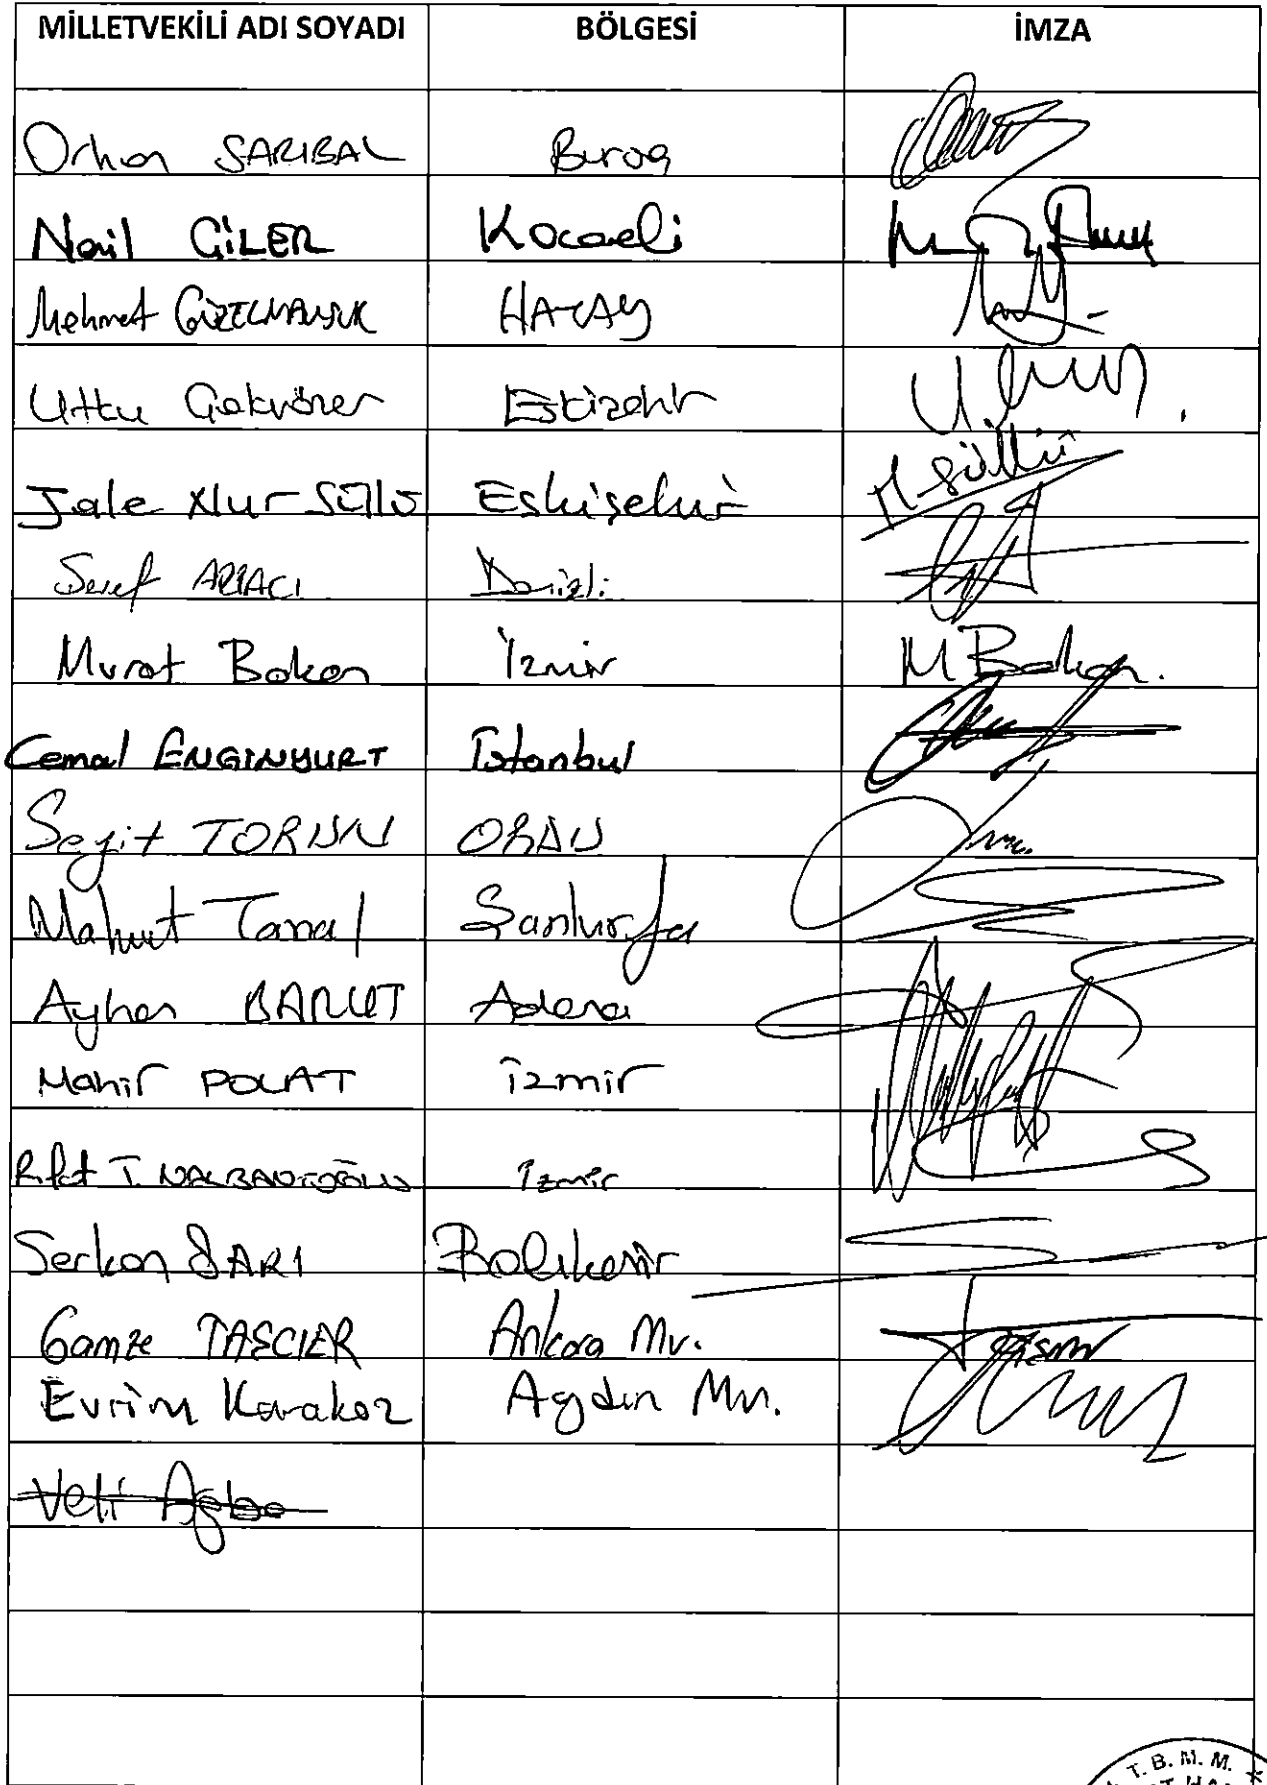 MİLLETVEKİLİ ADI SOYADI BÖLGESİ İMZA
Orhan SARIBAL Bursa
Nail ÇİLER Kocaeli
Mehmet GÜZELMANSUR HATAY
Utku Çakırözer Eskişehir
Jale Nur Süllü Eskişehir N. Süllü
Şeref ARPACI Denizli
Murat Bakan İzmir M Bakan.
Cemal ENGİNYURT İstanbul
Seyit TORUN ORDU
Mahmut Tanal Şanlıurfa
Ayhan BARUT Adana
Mahir POLAT İzmir
Rıfat T. NALBANTOĞLU İzmir
Serkan SARI Balıkesir
Gamze TAŞCIER Ankara Mv.
Evrim Karakoz Aydın Mv.
Veli Ağba
T. B. M. M.